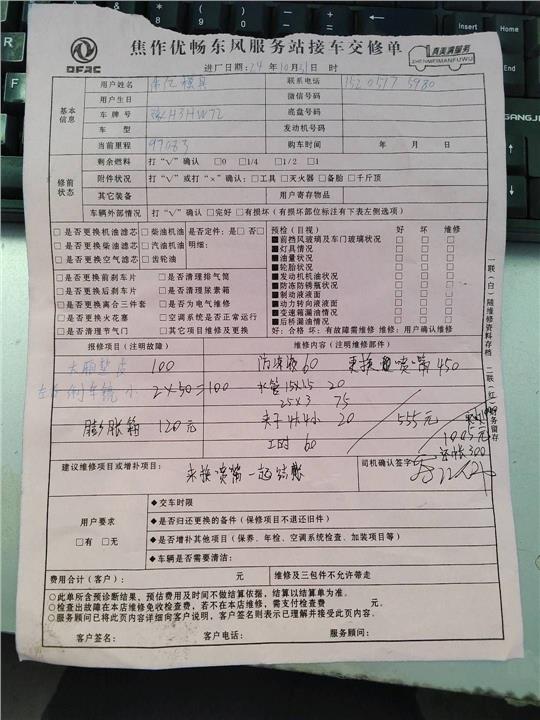 焦作优畅东风服务站接车交修单
DFAC
真美满服务
ZHENMEIMANFUWU
进厂日期:24 年 10 月 31 日 时
基本信息
用户姓名
联系电话
用户生日
微信号码
车牌号
底盘号码
车型
发动机号码
当前里程 97033
购车时间 年 月 日
修前状态
剩余燃料 打“√”确认 □0 □1/4 □1/2 □1
附件状况 打“√”或打“×”确认:□工具 □灭火器 □备胎 □千斤顶
其它装备
用户寄存物品
车辆外部情况 打“√”确认 □完好 □有损坏(有损坏部位标注有下表左侧选项)
□是否更换机油滤芯 □柴油机油 是否定件:是□ 否□
□是否更换柴油滤芯 □汽油机油 明细:
□是否更换空气滤芯 □齿轮油
□是否更换前刹车片 □是否清理排气筒
□是否更换后刹车片 □是否清理尿素箱
□是否更换离合三件套 □是否为电气维修
□是否更换火花塞 □空调系统是否正常运行
□是否清理节气门 □其它项目维修及更换
预检(目视) 好 坏 维修
■前挡风玻璃及车门玻璃状况
■灯具情况
■油量状况
■轮胎状况
■发动机机油状况
■防冻防锈瓶状况
■制动液液面
■动力转向液液面
■变速箱漏油情况
■后桥漏油情况
好:合格 坏:有故障需维修 维修:用户确认维修
一联(白)随维修资料存档 二联(红)财务留存
报修项目(注明故障)
维修内容(注明维修部件)
100
防冻液 60
更换 喷嘴 450
2×50=100
水管 15×15 20
25×3 75
膨胀箱 120元
夹子 4大4小 20
555元
工时 60
1005元
还帐300
建议维修项目或增补项目:
来换喷嘴一起结账
司机确认签字
用户要求
□有 □无
◆交车时限
◆是否归还更换的备件(保修项目不退还旧件)
◆是否增补其他项目(保养、年检、空调系统检查、加装项目等)
◆车辆是否需要清洁:
费用合计(客户): 元
维修及三包件不允许带走
○此单所含预诊断结果,预估费用及时间不做结算依据,结算以结算单为准。
○检查出故障在本店维修免收检查费,若不在本店维修,需支付检查费 元。
○服务顾问已将此页内容详细向客户说明,客户签名则表示已理解并接受此页内容。
客户签名: 客户电话: 服务顾问: